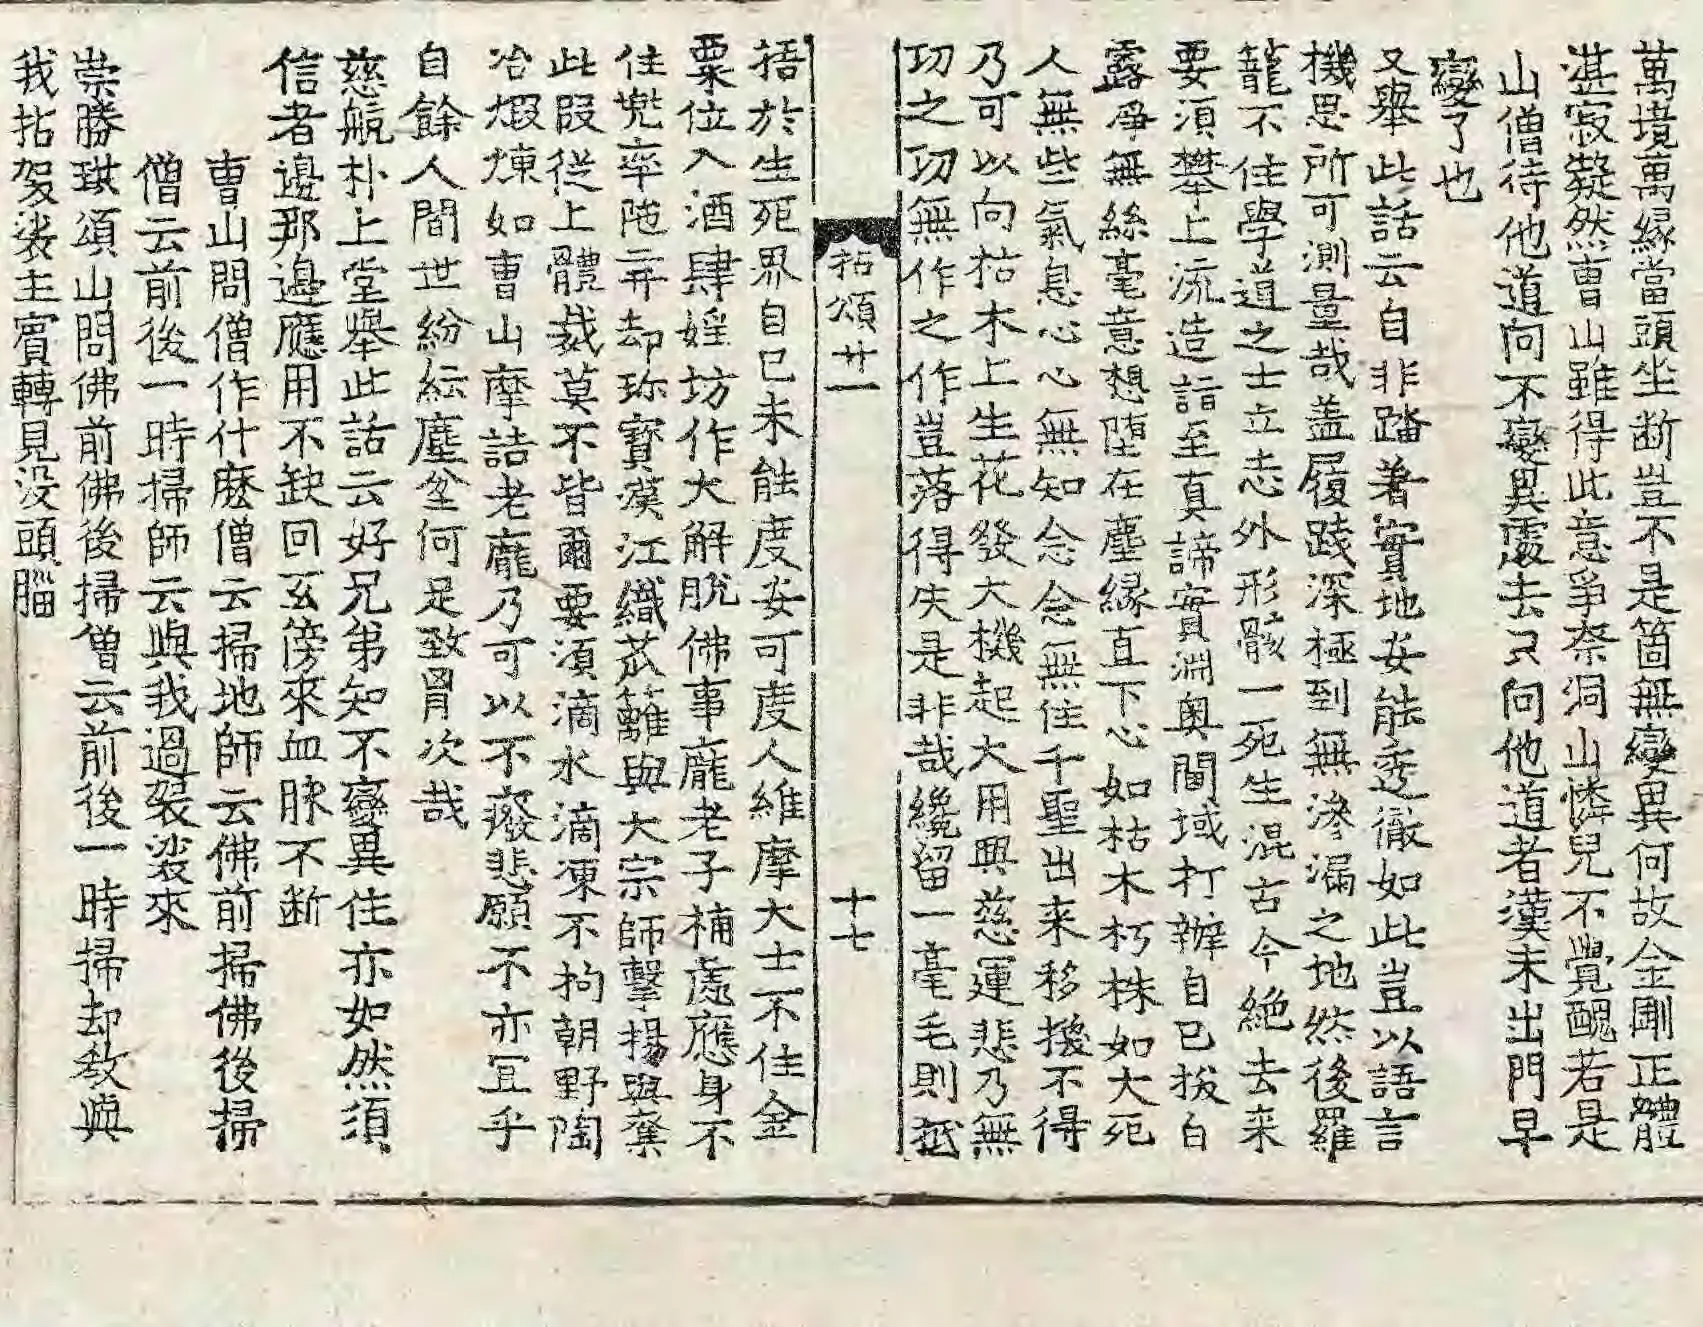 萬境萬緣當頭坐断豈不是箇無變異何故金剛正軆
湛寂凝然曹山雖得此意爭奈洞山憐兒不覺醜若是
山僧待他道向不變異處去只向他道者漢未出門早
變了也
又舉此話云自非踏著實地安能透徹如此豈以語言
機思所可測量哉盖履踐深極到無滲漏之地然後羅
籠不住學道之士立志外形骸一死生混古今絶去来
要須攀上流造詣至真諦實淵奥閫域打辦自己拔白
露淨無絲毫意想堕在塵緣直下心如枯木朽株如大死
人無些氣息心心無知念念無住千聖出来移撥不得
乃可以向枯木上生花發大機起大用興慈運悲乃無
功之功無作之作豈落得失是非哉纔留一毫毛則抵
拈頌廿一
十七
捂於生死界自己未能度安可度人維摩大士不住金
粟位入酒肆婬坊作大解脫佛事龐老子補處應身不
住兜率陁弄却珎寳漢江織苽籬與大宗師擊揚與奪
此叚從上體裁莫不皆爾要須滴水滴凍不拘朝野陶
冶煅煉如曹山摩詰老龐乃可以不癈悲願不亦冝乎
自餘人間世紛紜塵坌何足致胷次哉
慈航朴上堂舉此話云好兄弟知不變異住亦如然須
信者邊那邊應用不缺回玄傍來血脉不断
曹山問僧作什麽僧云掃地師云佛前掃佛後掃
僧云前後一時掃師云與我過袈裟來
崇勝珙頌山問佛前佛後掃僧云前後一時掃却教與
我拈袈裟主賓轉見没頭腦